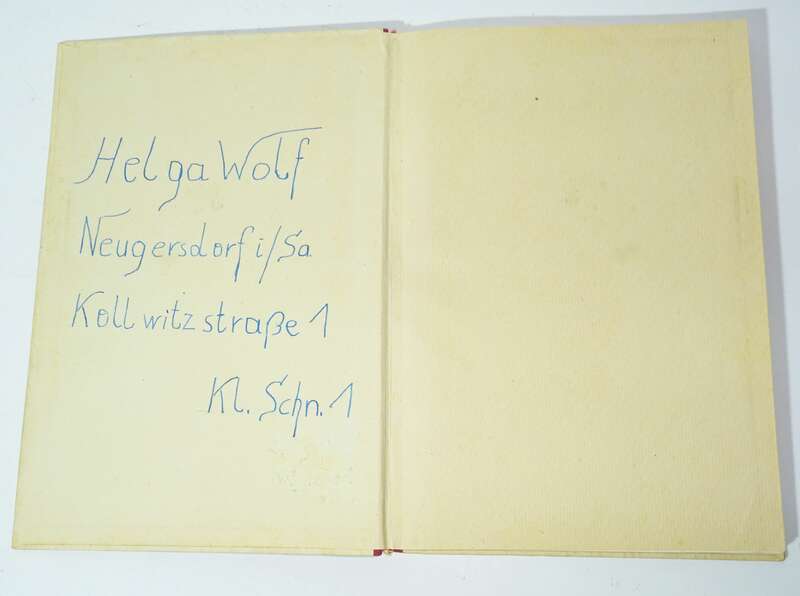 Helga Wolf
Neugersdorf i/Sa
Kollwitzstraße 1
Kl. Schn. 1